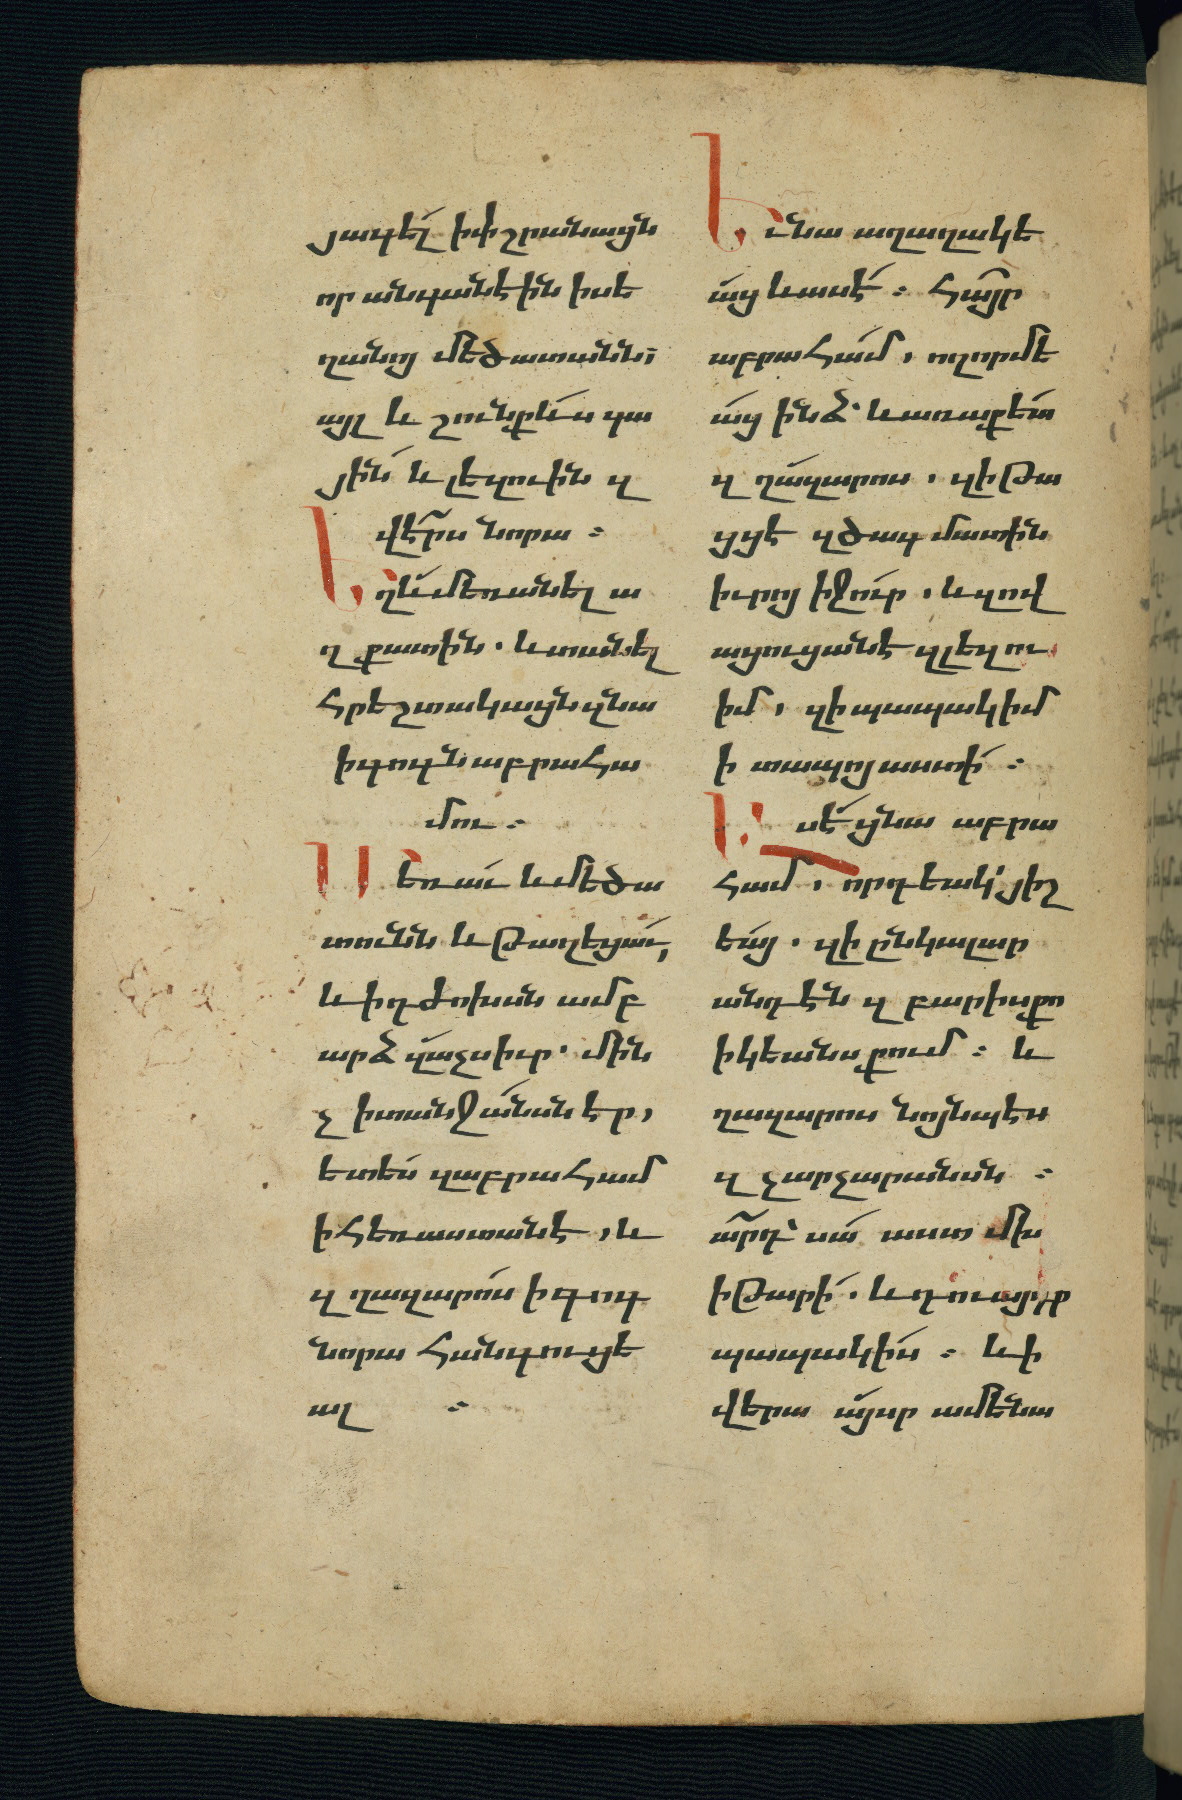 յագել իփշրանացն
որ անգանէին իսե
ղանոյ մեծատանն։
այլ և շունքևս գա
յին և լեզուին զ
վէրս նորա ։
Եղև մեռանել ա
ղքատին . և տանել
հրեշտակացն զնա
ի գոգն աբրահա
մու ։
Մեռաւ և մեծա
տունն և թաղեցաւ,
և ի դժոխսն ամբ
արձ զաչս իւր . մին
չ ի տանջանսն էր,
ետես զաբրահամ
ի հեռաստանէ , և
զ ղազարոս ի գոգ
նորա հանգուցե
ալ ։
Եւ նա աղաղակե
աց և ասէ ։ Հայր
աբրահամ , ողորմե
աց ինձ . և առաքեա
զ ղազարոս , զի թա
ցցէ զծագ մատին
իւրոյ ի ջուր , և զով
ացուցանէ զլեզու
իմ , զի պապակիմ
ի տապոյ աստի ։
Ասէ ցնա աբրա
համ , որդեակ յիշ
եայ . զի ընկալար
անդէն զ բարիս քո
ի կեանս քում ։ և
ղազարոս նոյնպէս
զ չարչարանսն ։
արդ սա աստ մխ
իթարի . և դու այդր
պապակիս ։ և ի
վերա այսր ամենա